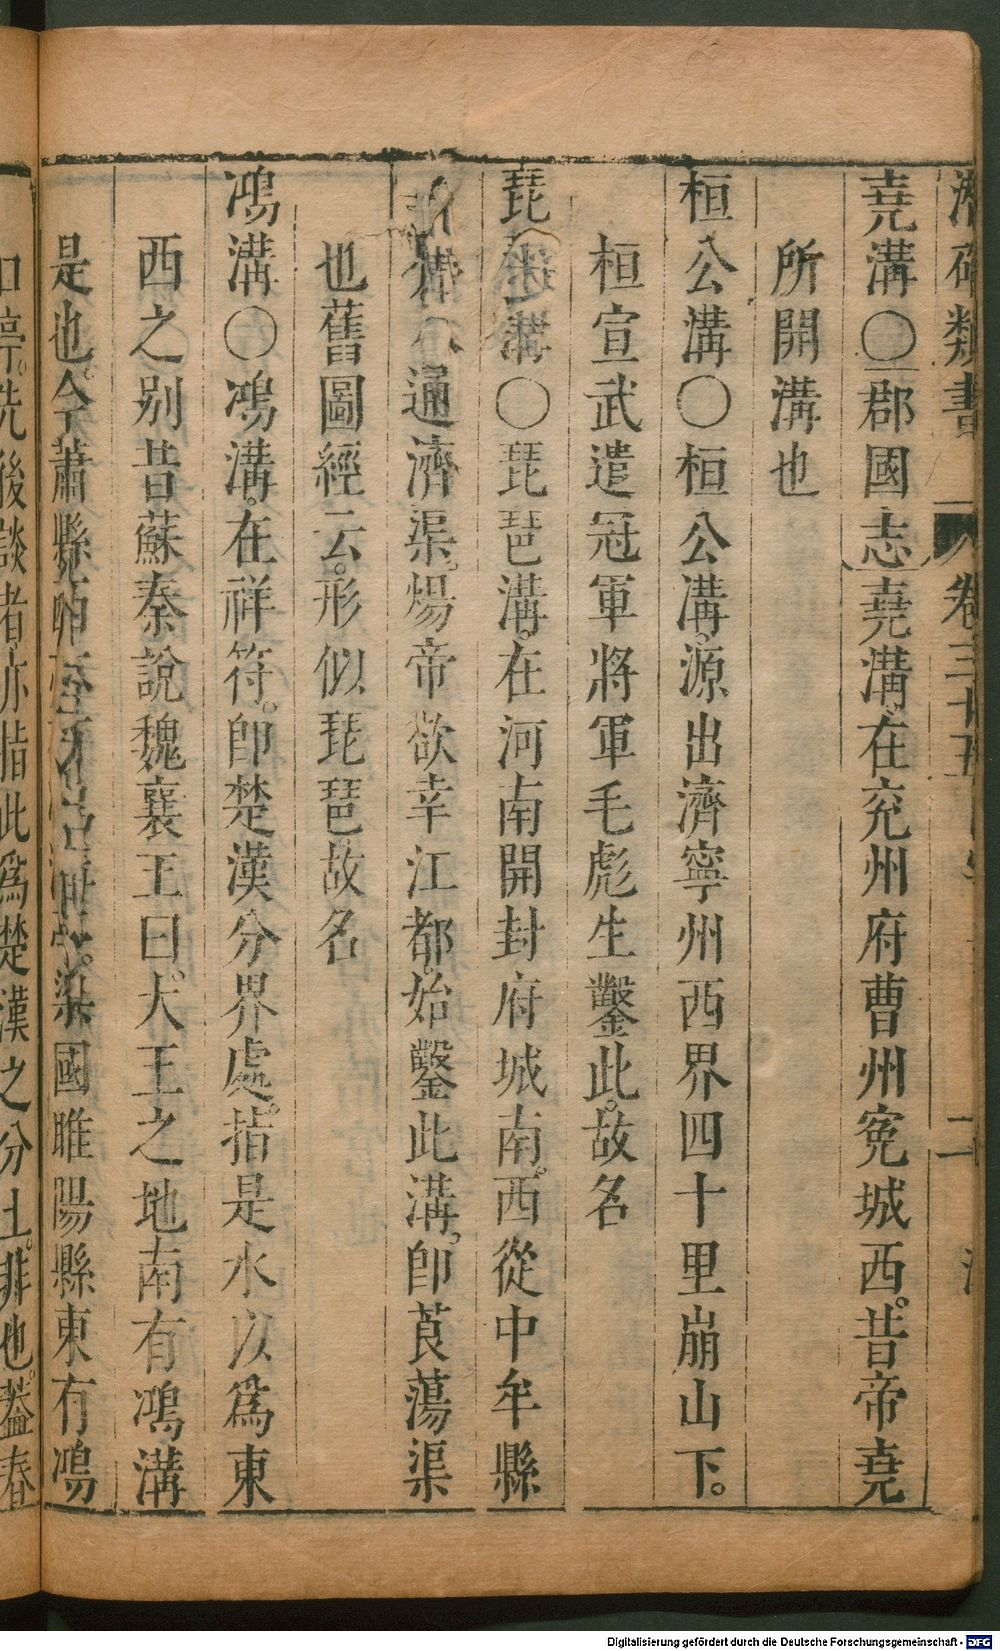 潛確類書 卷三十五 二
堯溝○郡國志堯溝在兖州府曹州寃城西昔帝堯
所開溝也
桓公溝○桓公溝源出濟寧州西界四十里崩山下
桓宣武遣冠軍將軍毛彪生鑿此故名
琵琶溝○琵琶溝在河南開封府城南西從中牟縣
通濟渠煬帝欲幸江都始鑿此溝卽莨蕩渠
也舊圖經云形似琵琶故名
鴻溝○鴻溝在祥符卽楚漢分界處指是水以爲東
西之别昔蘇秦說魏襄王曰大王之地南有鴻溝
是也今蕭縣 梁國睢陽縣東有鴻
口亭先後談者亦指此爲楚漢之分土非也蓋春
Digitalisierung gefördert durch die Deutsche Forschungsgemeinschaft - DFG